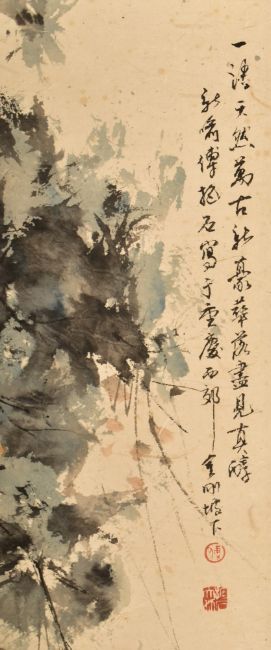 一語天然萬古新豪華落盡見真醇
新喻傅抱石寫于重慶西郊金剛坡下
傅